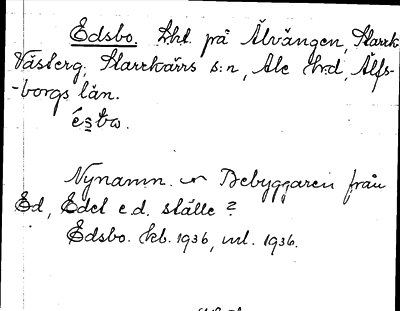 Edsbo. Lht. på Älvängen, Starrk
Västerg., Starrkärrs s:n, Ale hrd, Älfs-
-borgs län.
Nynamn. Bebyggaren från
Ed, Edet e.d. ställe?
Edsbo. kb. 1936, ml. 1936.